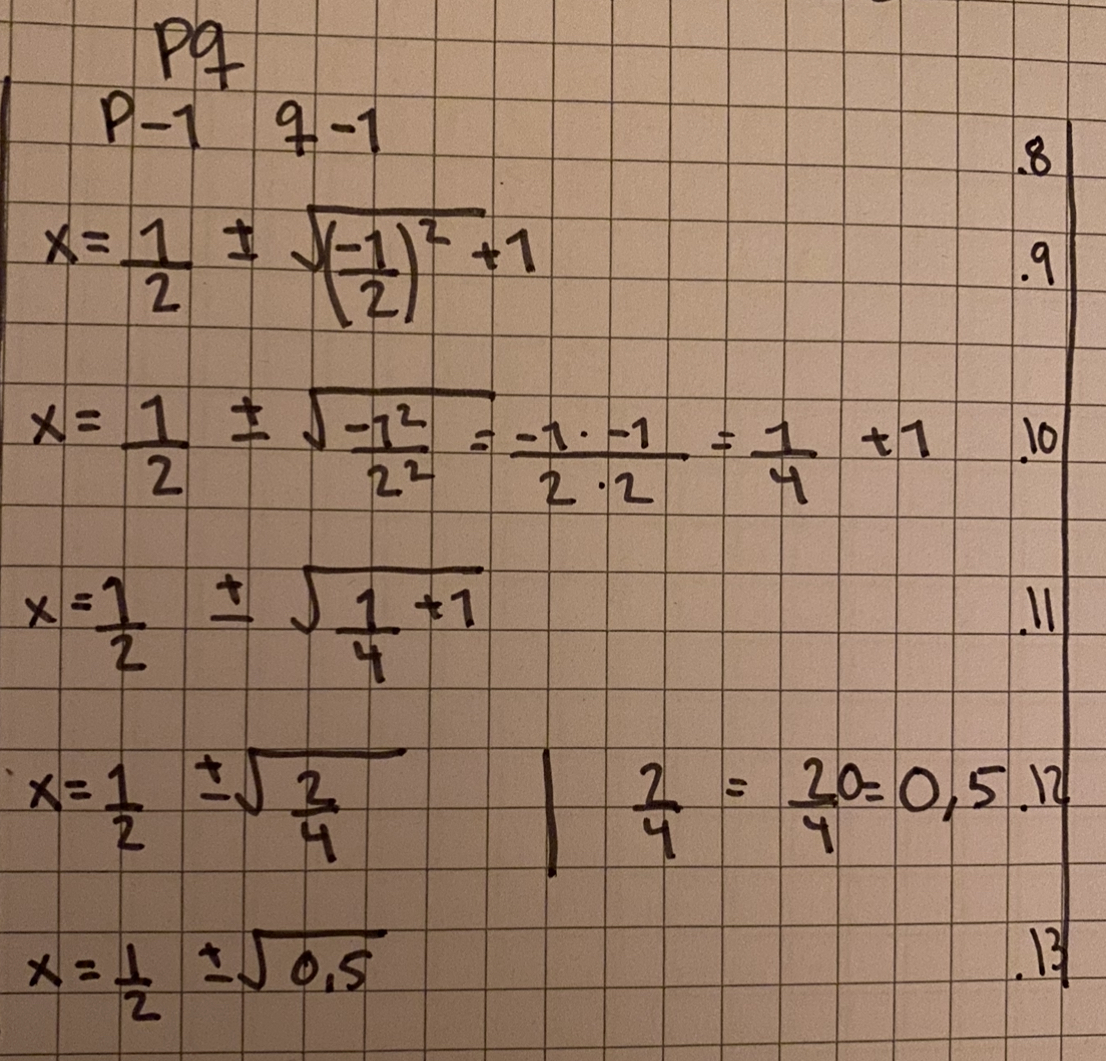 pq
P-1 q-1
.8
x = 1/2 ± √(-1/2)² +1 .9
x = 1/2 ± √-1²/2² = -1·-1/2·2 = 1/4 +1 .10
x = 1/2 ± √1/4 +1 .11
x = 1/2 ± √2/4 | 2/4 = 20/4 = 0,5 .12
x = 1/2 ± √0,5 .13